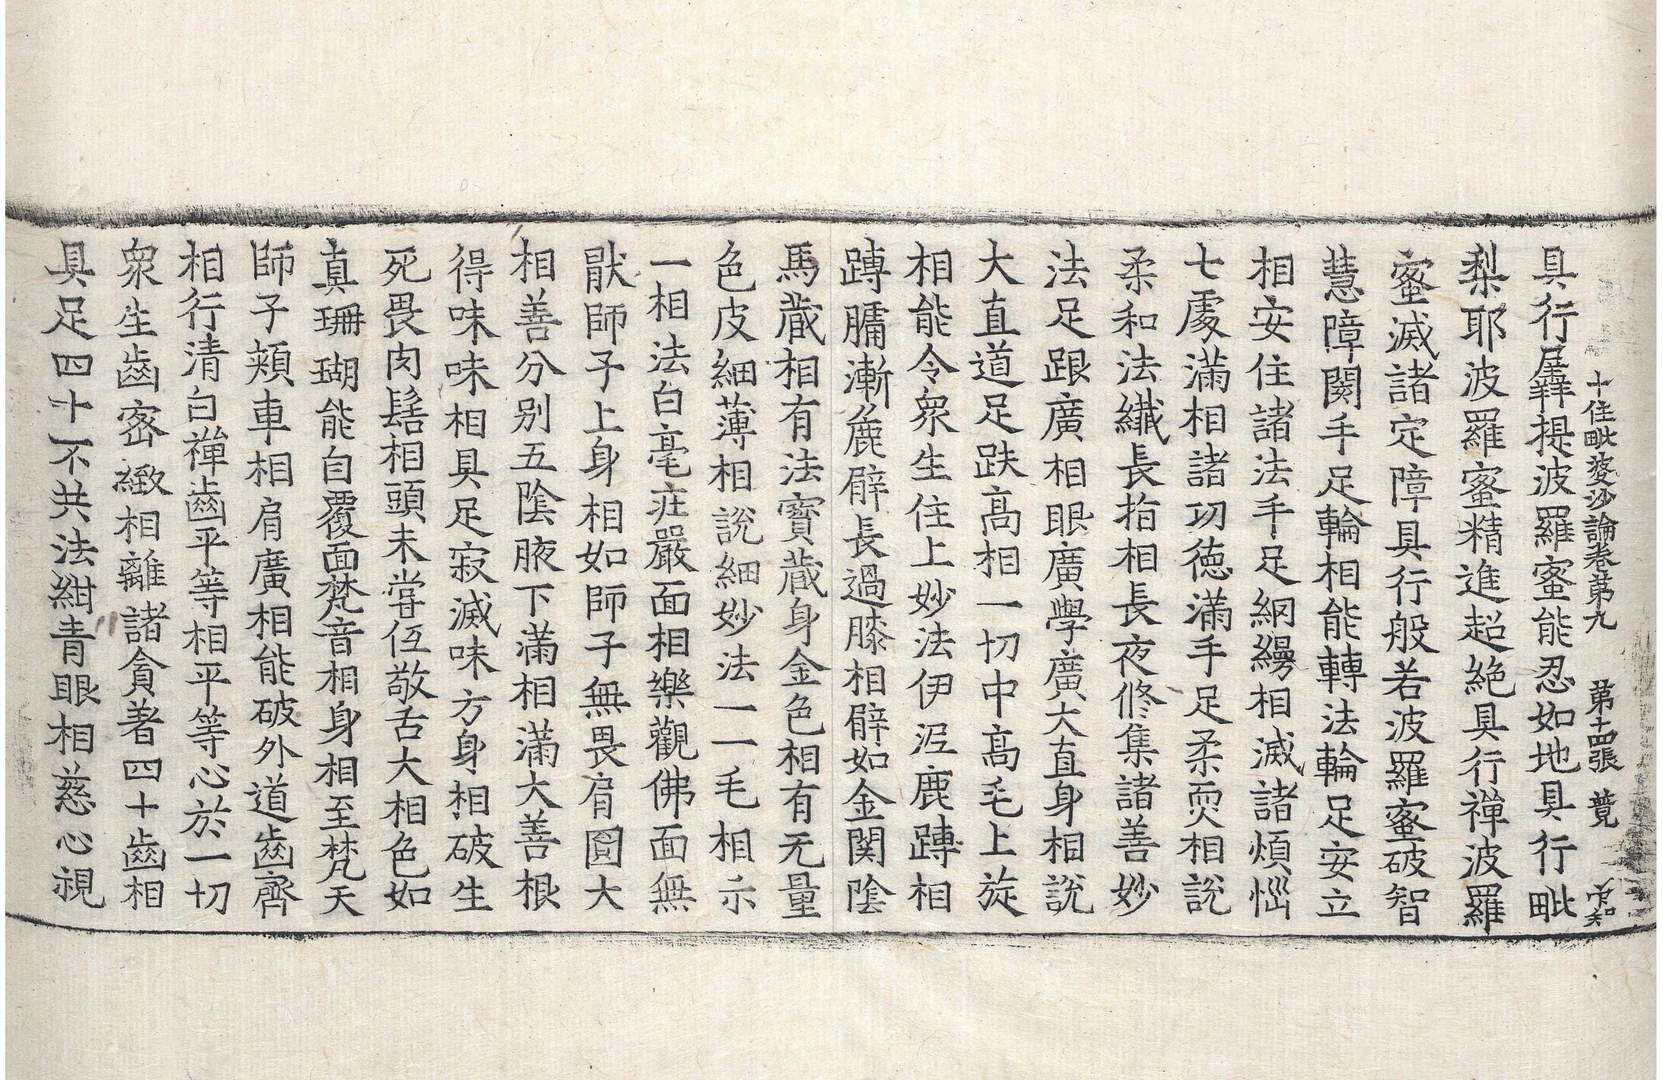 十住毗婆沙論卷第九　第十四張　薨
具行羼提波羅蜜能忍如地具行毗
梨耶波羅蜜精進超絶具行禪波羅
蜜滅諸定障具行般若波羅蜜破智
慧障閡手足輪相能轉法輪足安立
相安住諸法手足網縵相滅諸煩惱
七處滿相諸功德滿手足柔耎相說
柔和法纖長指相長夜修集諸善妙
法足跟廣相眼廣學廣大直身相說
大直道足趺高相一切中高毛上旋
相能令衆生住上妙法伊泥鹿蹲相
蹲𦟛漸麁臂長過膝相臂如金関陰
馬藏相有法寶藏身金色相有无量
色皮細薄相說細妙法一一毛相示
一相法白毫莊嚴面相樂觀佛面無
猒師子上身相如師子無畏肩圓大
相善分別五陰腋下滿相滿大善根
得味味相具足寂滅味方身相破生
死畏肉髻相頭未甞低敬舌大相色如
真珊瑚能自覆面梵音相身相至梵天
師子頰車相肩廣相能破外道齒齊
相行清白禪齒平等相平等心於一切
衆生齒密緻相離諸貪著四十齒相
具足四十不共法紺青眼相慈心視